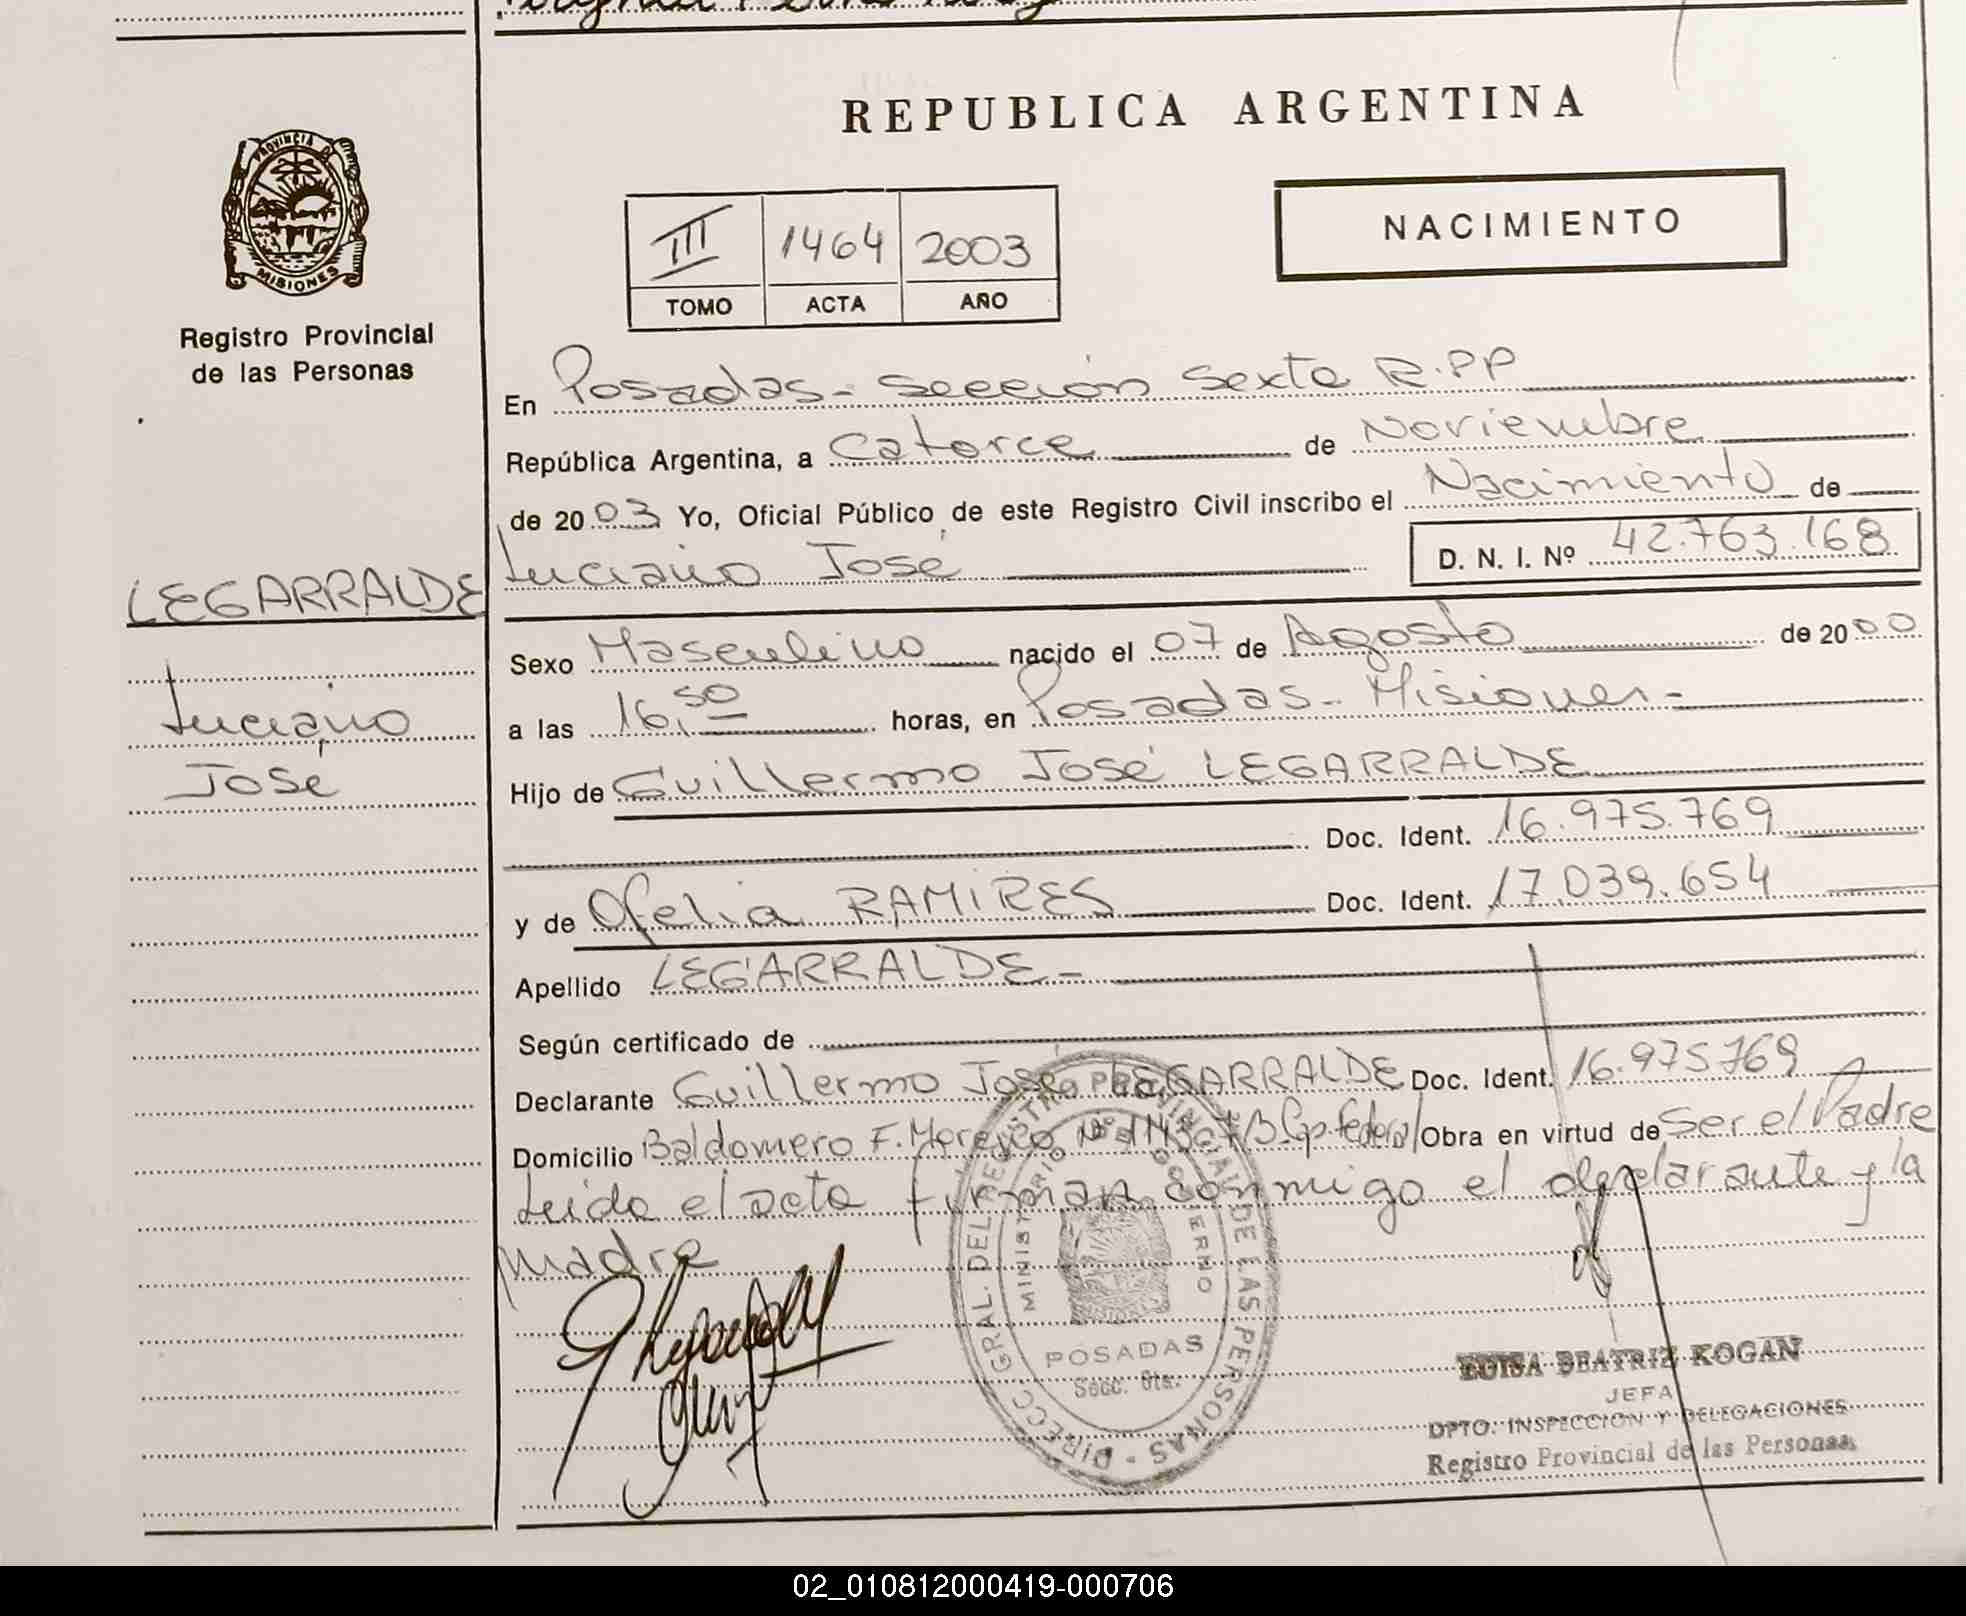 REPUBLICA ARGENTINA
PROVINCIA DE MISIONES
Registro Provincial
de las Personas
NACIMIENTO
III 1464 2003
TOMO ACTA AÑO
En Posadas - Sección Sexta R.PP
República Argentina, a Catorce de Noviembre
de 2003 Yo, Oficial Público de este Registro Civil inscribo el Nacimiento de
Luciano José D. N. I. Nº 42.763.168
LEGARRALDE
Luciano
José
Sexo Masculino nacido el 07 de Agosto de 2000
a las 16,50 horas, en Posadas - Misiones -
Hijo de Guillermo José LEGARRALDE
Doc. Ident. 16.975.769
y de Ofelia RAMIRES Doc. Ident. 17.039.654
Apellido LEGARRALDE -
Según certificado de
Declarante Guillermo José LEGARRALDE Doc. Ident. 16.975769
Domicilio Baldomero F. Moreno Nº Cap. Federal Obra en virtud de Ser el Padre
Leida el acta firman conmigo el declarante y la
madre
DIRECC. GRAL. DEL REGISTRO PROVINCIAL DE LAS PERSONAS
MINISTERIO DE GOBIERNO
POSADAS
Secc. 6ta.
LUISA BEATRIZ KOGAN
JEFA
DPTO. INSPECCION Y DELEGACIONES
Registro Provincial de las Personas
02_010812000419-000706